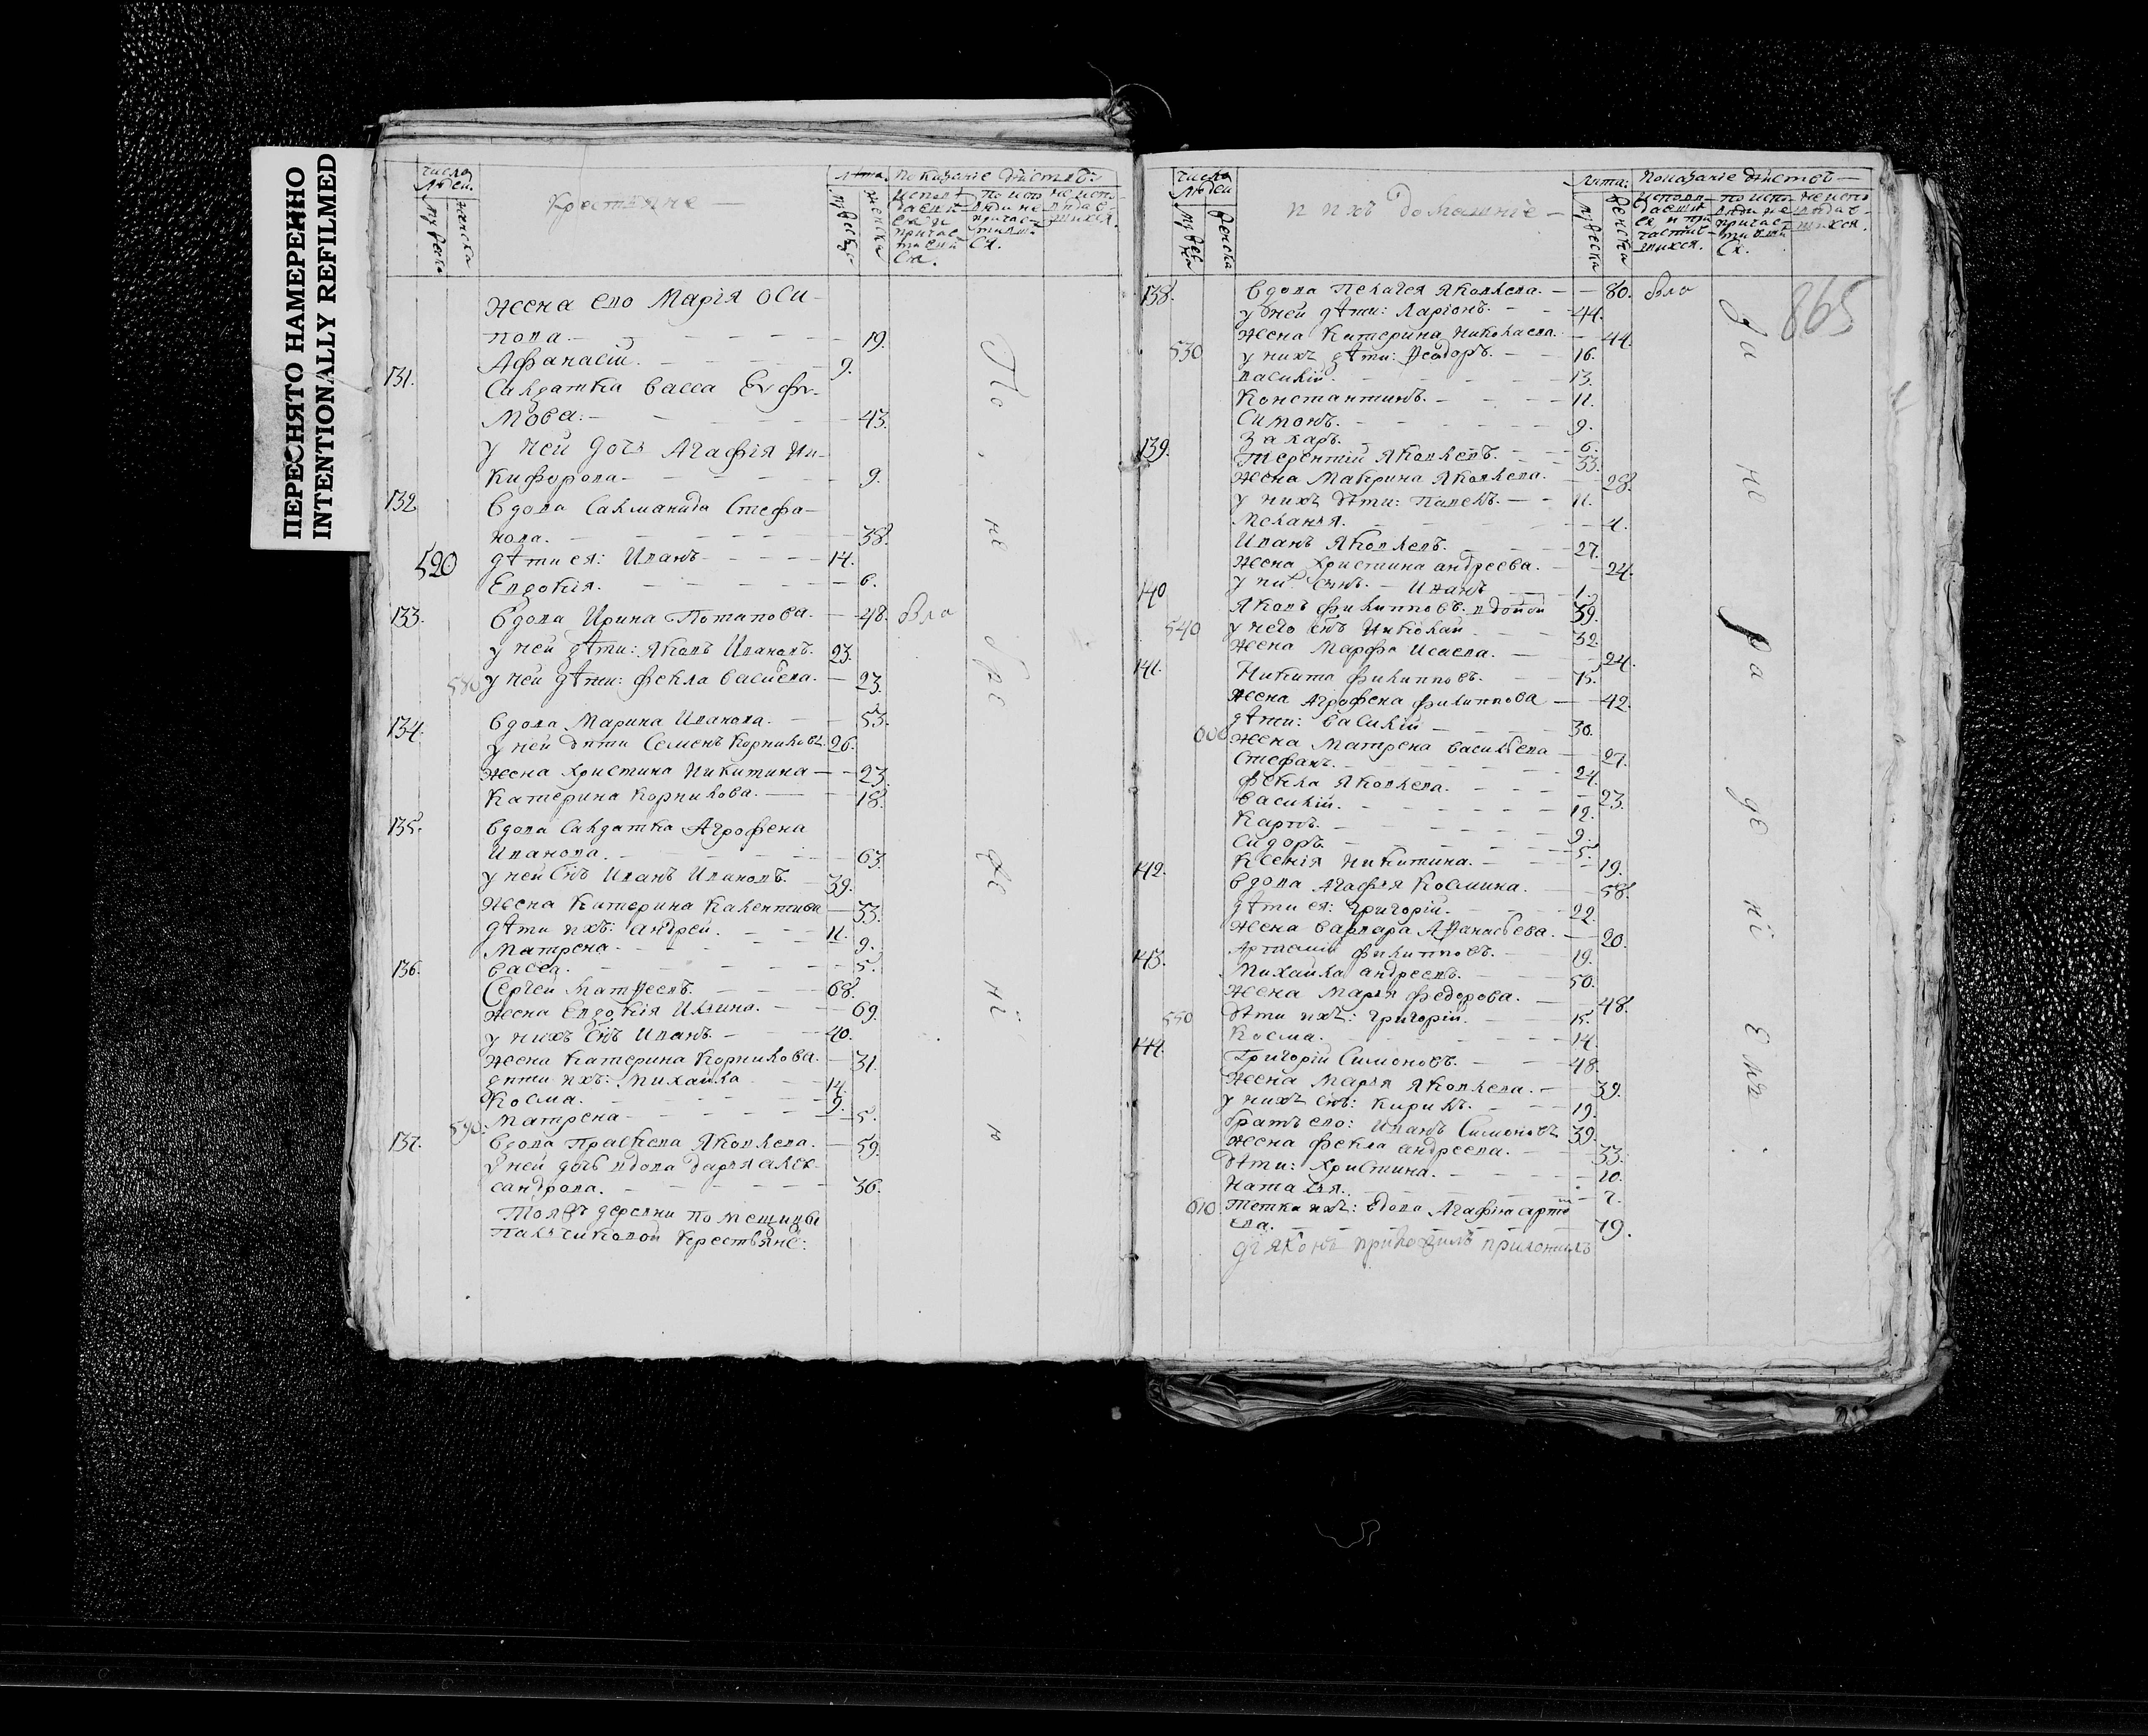 ПЕРЕСНЯТО НАМЕРЕННО
INTENTIONALLY REFILMED
число людей.
Крестьяне —
лѣта. показаніе дѣиствъ:
жена ево Марія Оси-
пова. 19.
Афанасій. 9.
131. Салдатка Васса Евфи-
мова: 43.
у ней дочь Агафія Ни-
кифорова 9.
132 Вдова Саламанида Стефа-
нова. 38.
520 дѣти ея: Иванъ 14.
Евдокія. 6.
133. Вдова Ирина Потапова. 48.
у ней дѣти: Яковъ Ивановъ. 23.
у ней дѣти: Фекла Васиева. 23.
134. Вдова Марина Иванова. 53.
у ней дѣти Семенъ Корниловъ. 26.
жена Христина Никитина 23.
Катерина Корнилова. 18.
135. Вдова Салдатка Агрофена
Иванова. 63.
у ней снъ Иванъ Ивановъ. 39.
жена Катерина Калентиева 33.
дѣти ихъ: Андрей. 11.
Матрена. 9.
Васса. 5.
136. Сергей Матвеевъ. 68.
жена Евдокія Ильина. 69.
у нихъ снъ Иванъ. 40.
жена Катерина Корнилова. 31.
дѣти ихъ: Михайла 14.
Косма. 9.
590. Матрена 5.
137. Вдова Прасковя Яковлева. 59.
у ней дочь вдова Дарья Алек-
сандрова. 36.
Тояжъ деревни помещицы
крестьяне:
По не бре же нї ю
число людей
и ихъ домашніе
лѣта: показаніе дѣиствъ
865
138. Вдова Пелагея Яковлева. 80.
у ней дѣти: Ларіонъ. 44.
жена Катерина Николаева. 44.
530 у нихъ дѣти: Феодоръ. 16.
Василій. 13.
Константинъ. 11.
Симонъ. 9.
Захаръ. 6.
139. Терентій Яковлевъ. 33.
жена Макрина Яковлева. 28.
у нихъ дѣти: Павелъ. 11.
Меланья. 4.
Иванъ Яковлевъ. 27.
жена Христина Андреева. 24.
у ни снъ. Иванъ 1.
140 Яковъ Филипповъ. вдовой 59.
540 у него снъ Николай 32.
жена Марфа Исаева. 24.
141. Никита Филипповъ. 75.
жена Агрофена Филиппова 42.
дѣти: Василий 30.
600 жена Матрена Васильева 27.
Стефанъ. 24.
Фекла Яковлева. 23.
Василій. 12.
Карпъ. 9.
Сидоръ. 5.
Ксенія Никитина. 19.
142. Вдова Агафья Космина. 58.
дѣти ея: Григорій. 22.
жена Варвара Афанасьева. 20.
Артемій Филипповъ. 19.
143. Михайла Андреевъ. 50.
жена Марья Федорова. 48.
550 дѣти ихъ: Григорій. 15.
Косма. 14.
144. Григорій Симоновъ. 48.
жена Марья Яковлева. 39.
у нихъ снъ: Кирилъ. 19.
братъ ево: Иванъ Симоновъ 39.
жена Фекла Андреева. 33.
дѣти: Христина. 10.
Наталья. 7.
610 Тетка ихъ: Вдова Агафія Арте
ева. 79.
дїяконъ приложилъ
За не ра де нї емъ.